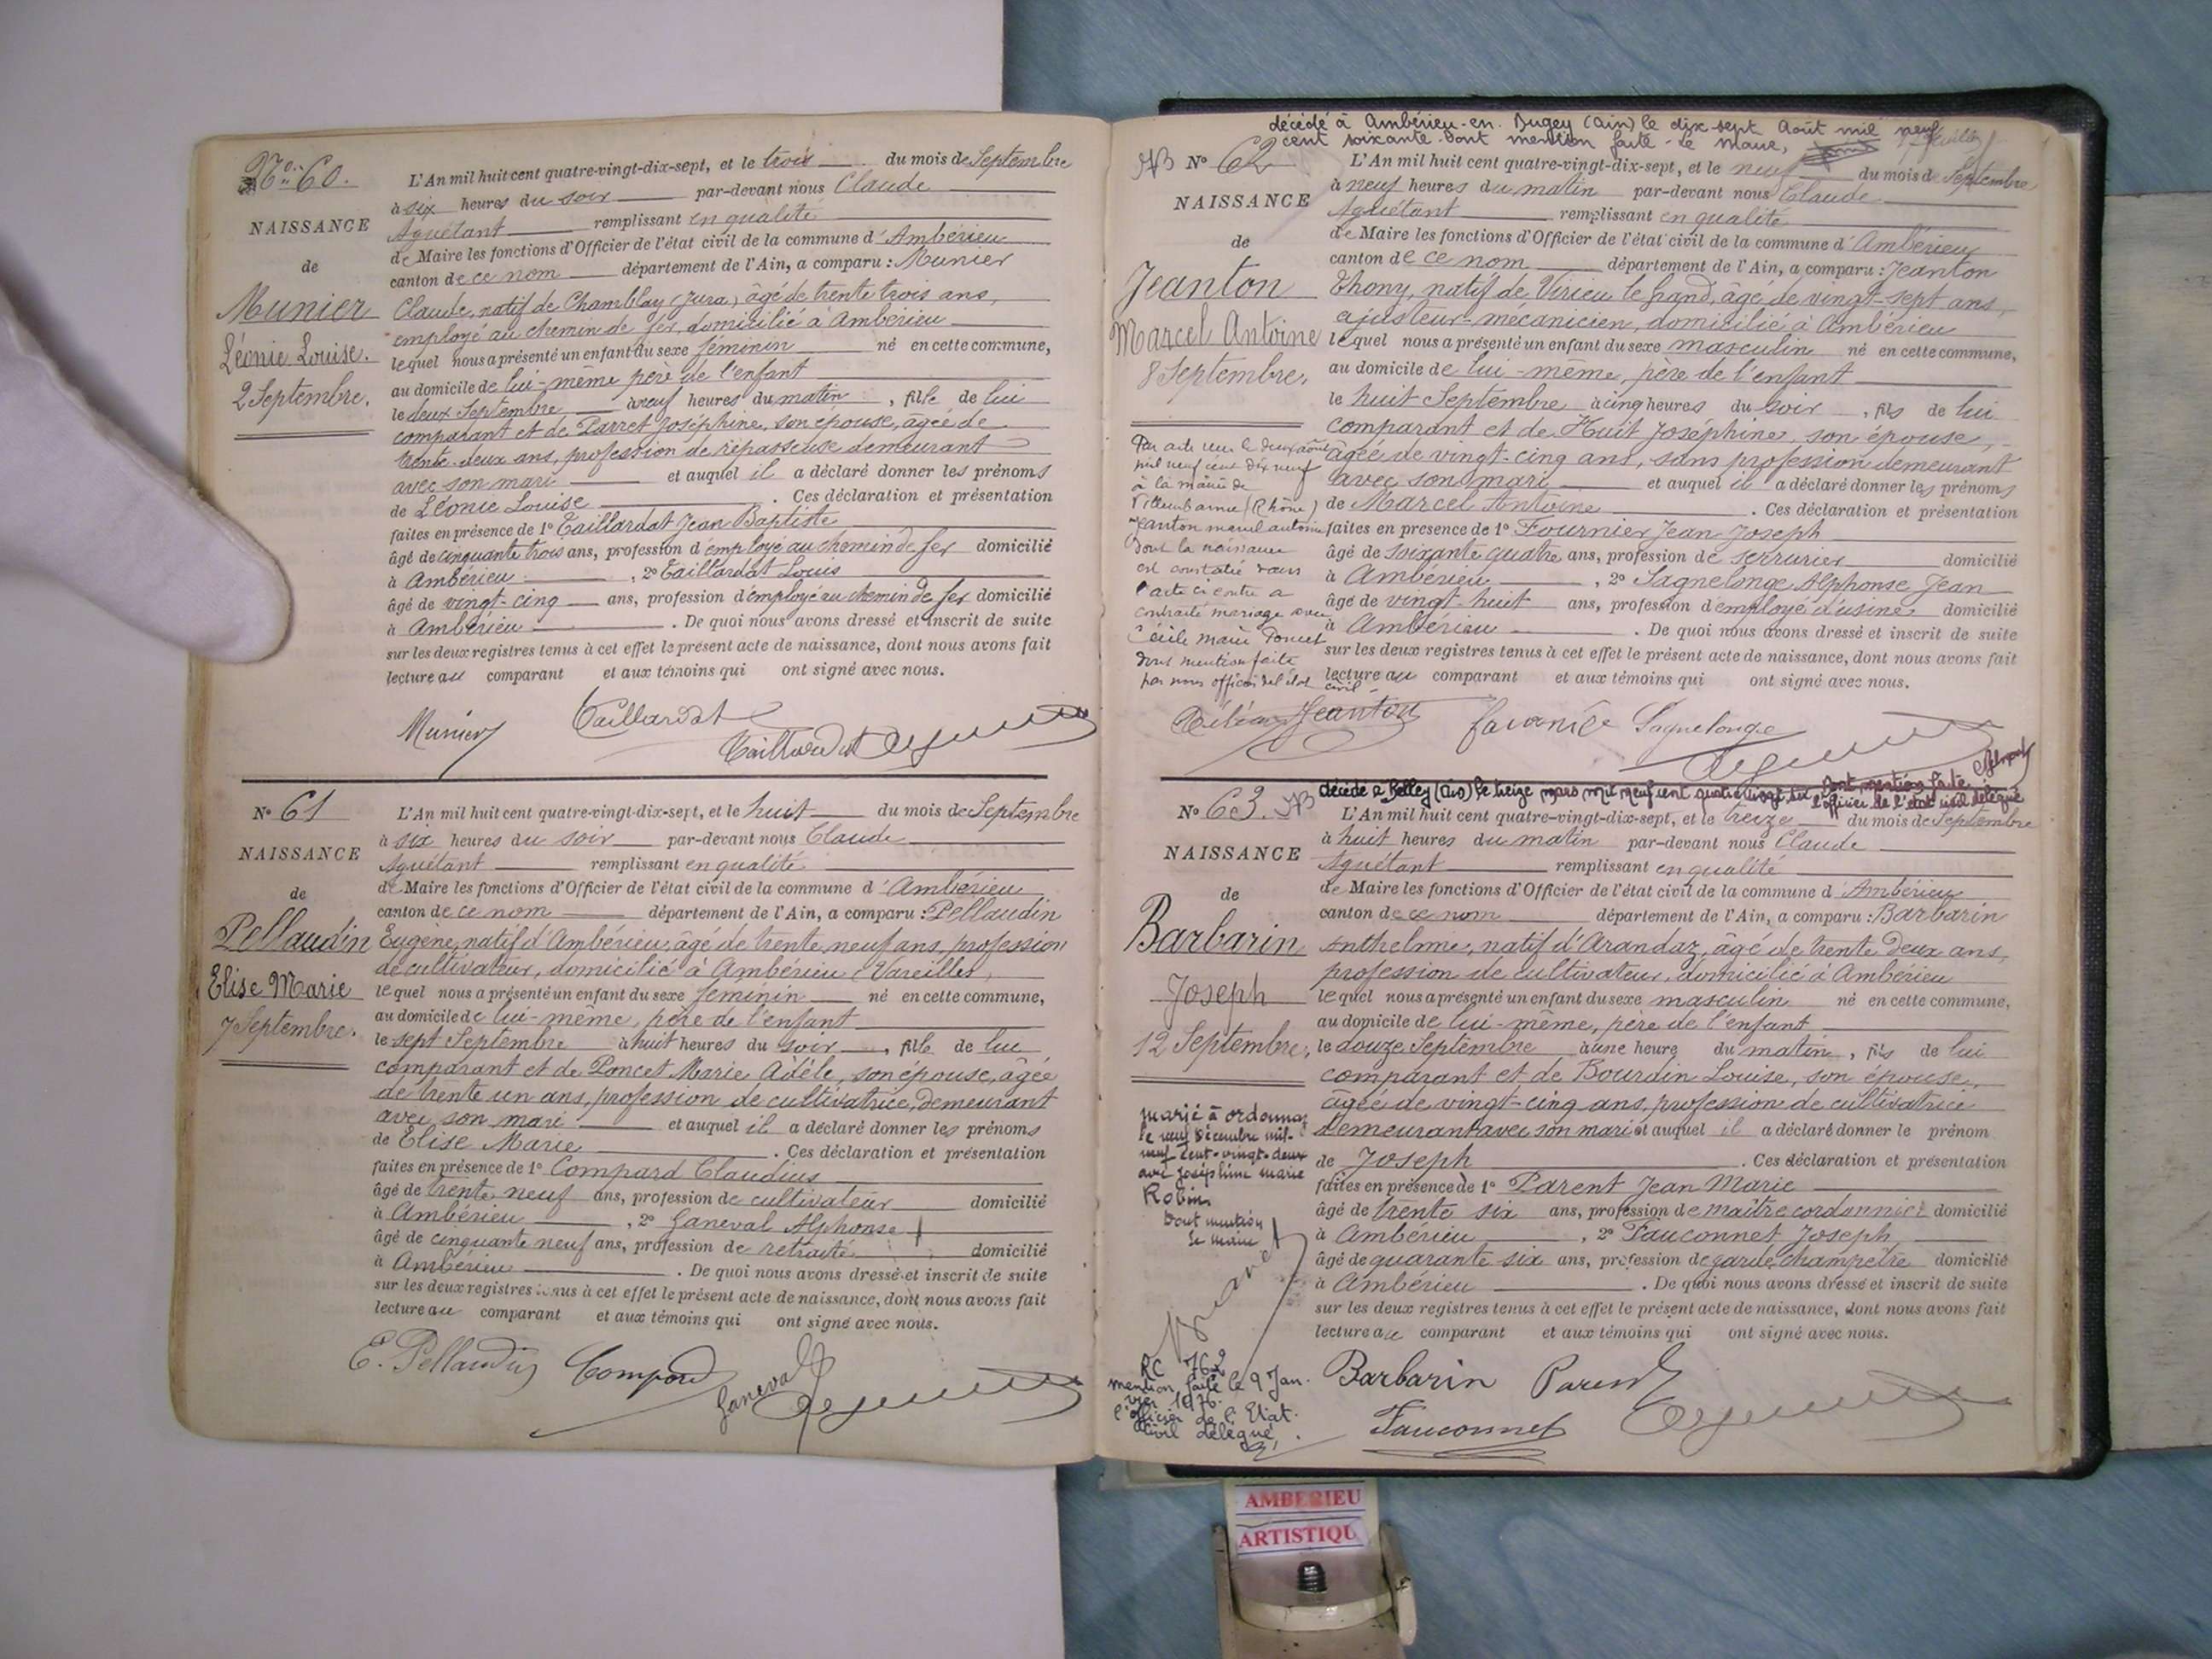 No. 60.
NAISSANCE
de
Munier
Léonie Louise.
2 Septembre.
L'An mil huit cent quatre-vingt-dix-sept, et le trois du mois de Septembre
à six heures du soir par-devant nous Claude
Aguétant remplissant en qualité
de Maire les fonctions d'Officier de l'état civil de la commune d'Ambérieu
canton de ce nom département de l'Ain, a comparu : Munier
Claude, natif de Chamblay (Jura) âgé de trente trois ans,
employé au chemin de fer, domicilié à Ambérieu
lequel nous a présenté un enfant du sexe féminin né en cette commune,
au domicile de lui-même père de l'enfant
le deux Septembre à neuf heures du matin, fille de lui
comparant et de Parret Joséphine, son épouse, âgée de
trente-deux ans, profession de repasseuse demeurant
avec son mari et auquel il a déclaré donner les prénoms
de Léonie Louise. Ces déclaration et présentation
faites en présence de 1° Taillardat Jean Baptiste
âgé de cinquante trois ans, profession d'employé au chemin de fer domicilié
à Ambérieu, 2° Taillardat Louis
âgé de vingt-cinq ans, profession d'employé au chemin de fer domicilié
à Ambérieu. De quoi nous avons dressé et inscrit de suite
sur les deux registres tenus à cet effet le présent acte de naissance, dont nous avons fait
lecture au comparant et aux témoins qui ont signé avec nous.
Munier Taillardat
Taillardat
N° 61
NAISSANCE
de
Pellaudin
Elise Marie
7 Septembre.
L'An mil huit cent quatre-vingt-dix-sept, et le huit du mois de Septembre
à six heures du soir par-devant nous Claude
Aguétant remplissant en qualité
de Maire les fonctions d'Officier de l'état civil de la commune d'Ambérieu
canton de ce nom département de l'Ain, a comparu : Pellaudin
Eugène, natif d'Ambérieu, âgé de trente neuf ans, profession
de cultivateur, domicilié à Ambérieu (Vareilles)
lequel nous a présenté un enfant du sexe féminin né en cette commune,
au domicile de lui-même, père de l'enfant
le sept Septembre à huit heures du soir, fille de lui
comparant et de Poncet Marie Adèle, son épouse, âgée
de trente un ans, profession de cultivatrice, demeurant
avec son mari et auquel il a déclaré donner les prénoms
de Elise Marie. Ces déclaration et présentation
faites en présence de 1° Compard Claudius
âgé de trente neuf ans, profession de cultivateur domicilié
à Ambérieu, 2° Ganeval Alphonse
âgé de cinquante neuf ans, profession de retraité domicilié
à Ambérieu. De quoi nous avons dressé et inscrit de suite
sur les deux registres tenus à cet effet le présent acte de naissance, dont nous avons fait
lecture au comparant et aux témoins qui ont signé avec nous.
E. Pellaudin Compard Ganeval
décédé à Ambérieu-en-Bugey (Ain) le dix-sept Août mil neuf
cent soixante. Dont mention faite - le Maire,
N° 62
NAISSANCE
de
Jeanton
Marcel Antoine
8 Septembre.
L'An mil huit cent quatre-vingt-dix-sept, et le neuf du mois de Septembre
à neuf heures du matin par-devant nous Claude
Aguétant remplissant en qualité
de Maire les fonctions d'Officier de l'état civil de la commune d'Ambérieu
canton de ce nom département de l'Ain, a comparu : Jeanton
Thony, natif de Virieu le Grand, âgé de vingt-sept ans,
ajusteur-mécanicien, domicilié à Ambérieu
lequel nous a présenté un enfant du sexe masculin né en cette commune,
au domicile de lui-même, père de l'enfant
le huit Septembre à cinq heures du soir, fils de lui
comparant et de Huit Joséphine, son épouse,
âgée de vingt-cinq ans, sans profession demeurant
avec son mari et auquel il a déclaré donner les prénoms
de Marcel Antoine. Ces déclaration et présentation
faites en présence de 1° Fournier Jean Joseph
âgé de soixante quatre ans, profession de serrurier domicilié
à Ambérieu, 2° Sagnelonge Alphonse Jean
âgé de vingt-huit ans, profession d'employé d'usine domicilié
à Ambérieu. De quoi nous avons dressé et inscrit de suite
sur les deux registres tenus à cet effet le présent acte de naissance, dont nous avons fait
lecture au comparant et aux témoins qui ont signé avec nous.
Par acte reçu le deux août
mil neuf cent dix neuf
à la mairie de
Villeurbanne (Rhône)
Jeanton marcel antoine
dont la naissance
est constatée dans
l'acte ci contre a
contracté mariage avec
Cécile Marie Poncet
dont mention faite
par nous officier de l'état
civil
Jeanton Sagnelonge
décédé à Belley (Ain) le treize mars mil neuf cent quatre vingt six, Dont mention faite
l'officier de l'état civil délégué
N° 63.
NAISSANCE
de
Barbarin
Joseph
12 Septembre.
L'An mil huit cent quatre-vingt-dix-sept, et le treize du mois de Septembre
à huit heures du matin par-devant nous Claude
Aguétant remplissant en qualité
de Maire les fonctions d'Officier de l'état civil de la commune d'Ambérieu
canton de ce nom département de l'Ain, a comparu : Barbarin
Anthelme, natif d'Arandaz, âgé de trente deux ans,
profession de cultivateur, domicilié à Ambérieu
lequel nous a présenté un enfant du sexe masculin né en cette commune,
au domicile de lui-même, père de l'enfant
le douze Septembre à une heure du matin, fils de lui
comparant et de Bourdin Louise, son épouse,
âgée de vingt-cinq ans, profession de cultivatrice
demeurant avec son mari et auquel il a déclaré donner le prénom
de Joseph. Ces déclaration et présentation
faites en présence de 1° Parent Jean Marie
âgé de trente six ans, profession de maître cordonnier domicilié
à Ambérieu, 2° Fauconnet Joseph
âgé de quarante six ans, profession de garde champêtre domicilié
à Ambérieu. De quoi nous avons dressé et inscrit de suite
sur les deux registres tenus à cet effet le présent acte de naissance, dont nous avons fait
lecture au comparant et aux témoins qui ont signé avec nous.
marié à ordonnaz
le neuf Décembre mil-
neuf-cent-vingt-deux
avec Joséphine marie
Robin
Dont mention
Le maire
RC 762
mention faite le 9 Jan-
vier 1976.
l'officier de l'Etat-
civil délégué.
Barbarin Parent
Fauconnet
AMBERIEU
ARTISTIQU